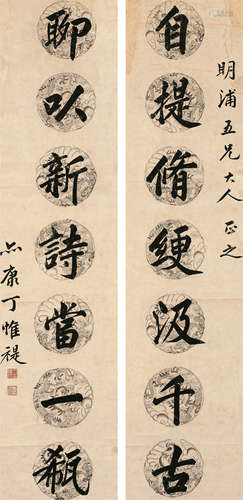 明浦五兄大人正之
自提脩綆汲千古
聊以新詩當一瓻
丁惟禔